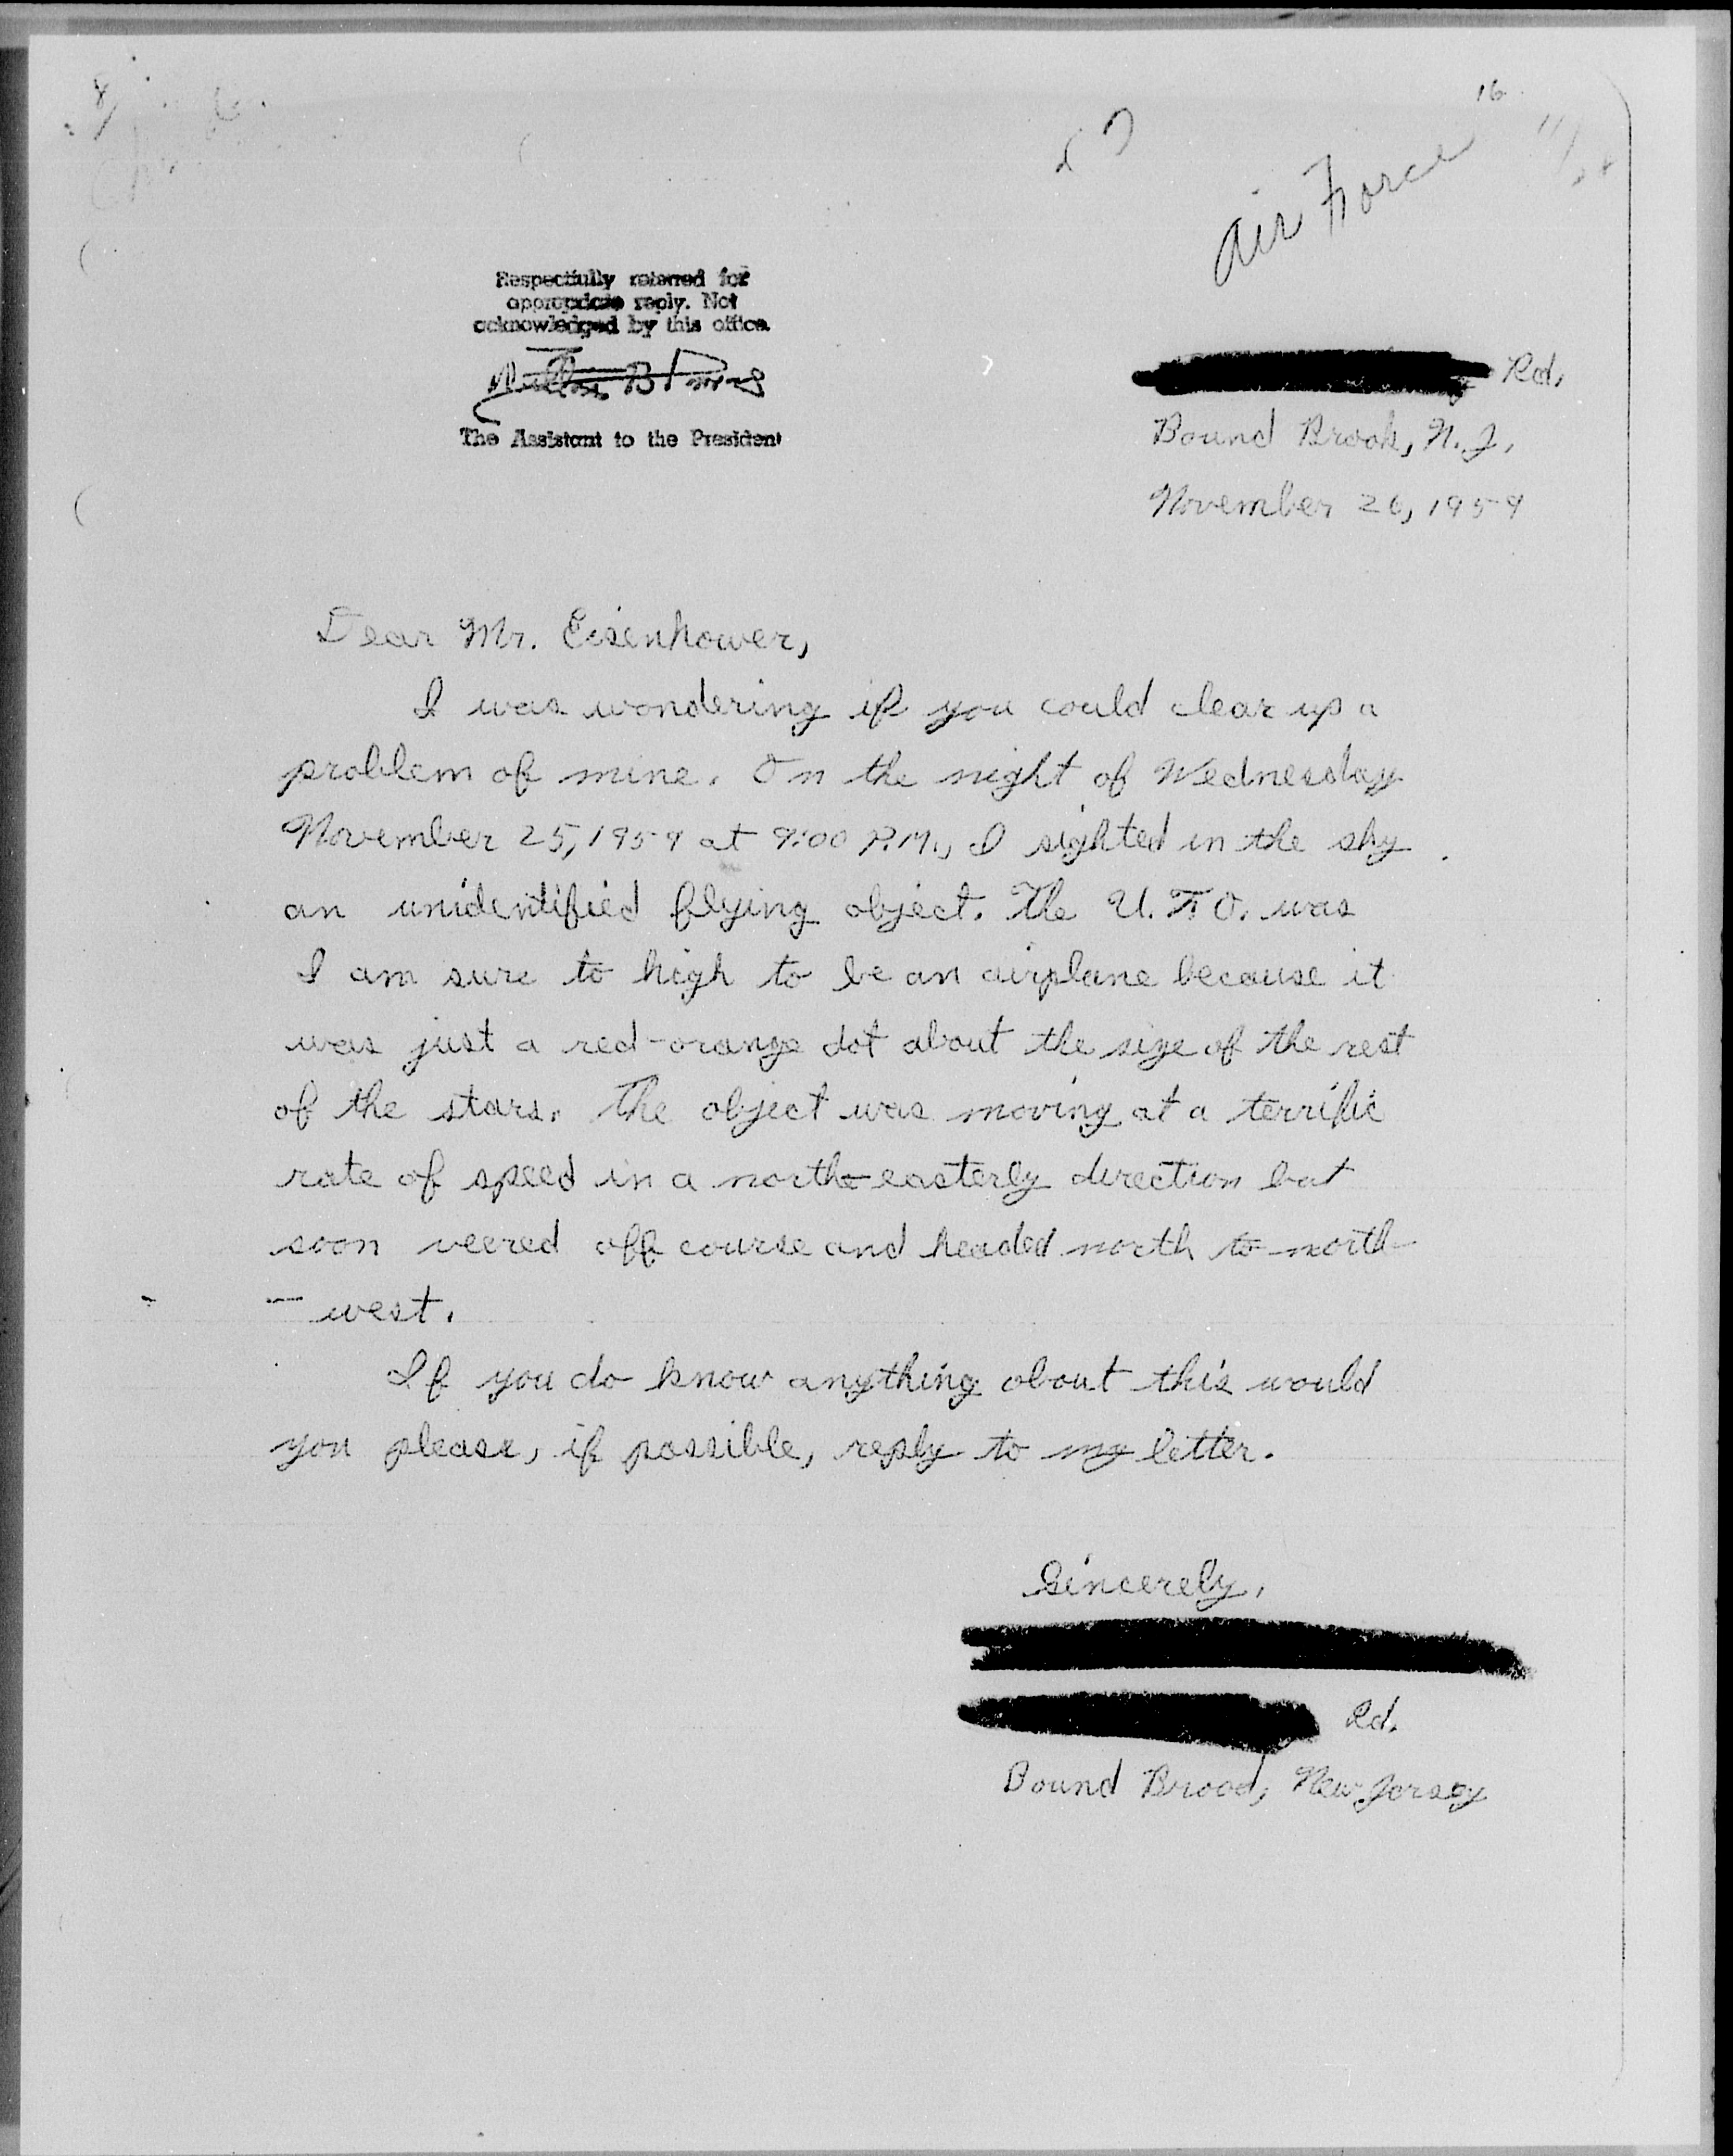 16
Air Force
Respectfully referred for
appropriate reply. Not
acknowledged by this office.
The Assistant to the President
Rd.
Bound Brook, N.J.
November 26, 1959
Dear Mr. Eisenhower,
I was wondering if you could clear up a
problem of mine. On the night of Wednesday
November 25, 1959 at 9:00 P.M., I sighted in the sky
an unidentified flying object. The U.F.O. was
I am sure to high to be an airplane because it
was just a red-orange dot about the size of the rest
of the stars. The object was moving at a terrific
rate of speed in a north-easterly direction but
soon veered off course and headed north to north-
-west.
If you do know anything about this would
you please, if possible, reply to my letter.
Sincerely,
Rd.
Bound Brood, New Jersey